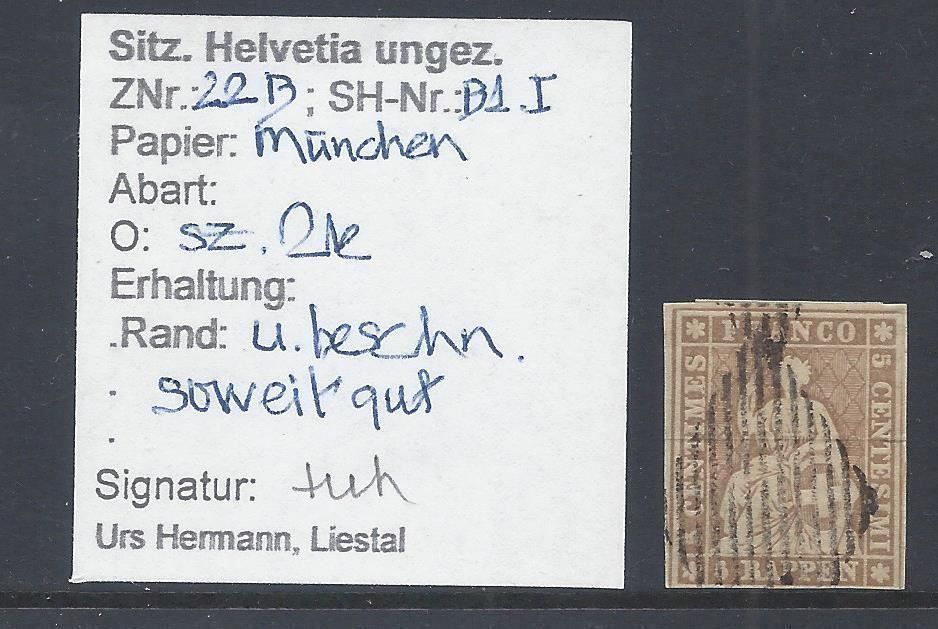 Sitz. Helvetia ungez.
ZNr.:22B; SH-Nr.:B1.I
Papier: München
Abart:
O: sz.
Erhaltung:
.Rand: u. beschn.
. soweit gut
.
Signatur:
Urs Hermann, Liestal
FRANCO
5 CENTESIMI
RAPPEN
CENTIMES